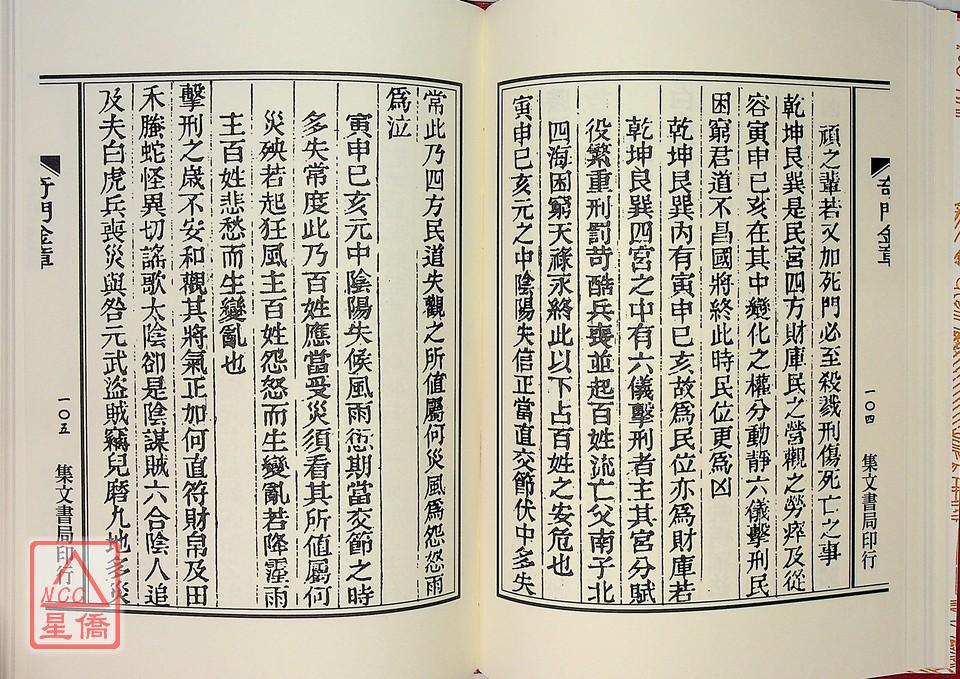 頑之輩若又加死門必至殺戮刑傷死亡之事
乾坤艮巽是民宮四方財庫民之營觀之勞瘁及從
容寅申巳亥在其中變化之權分動靜六儀擊刑民
困窮君道不昌國將終此時民位更為凶
乾坤艮巽內有寅申巳亥故為民位亦為財庫若
乾坤艮巽四宮之中有六儀擊刑者主其宮分賦
役繁重刑罰苛酷兵喪並起百姓流亡父南子北
四海困窮天祿永終此以下占百姓之安危也
寅申巳亥元之中陰陽失信正當直交節伏中多失
奇門金章
一〇四
集文書局印行
常此乃四方民道失觀之所值屬何災風為怨怒雨
為泣
寅申巳亥元中陰陽失候風雨愆期當交節之時
多失常度此乃百姓應當受災須看其所值屬何
災殃若起狂風主百姓怨怒而生變亂若降霪雨
主百姓悲愁而生變亂也
擊刑之歲不安和觀其將氣正加何直符財帛及田
禾螣蛇怪異切謠歌太陰卻是陰謀賊六合陰人追
及夫白虎兵喪災與咎元武盜賊竊兒磨九地多災
奇門金章
一〇五
集文書局印行
NCC
星僑